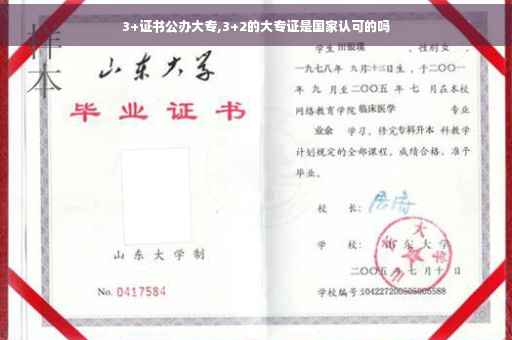 3+证书公办大专,3+2的大专证是国家认可的吗
样本
山东大学
毕业证书
山东大学制
No. 0417584
学生 , 性别女,
一九七八年 九月十三日生, 于二〇〇一
年 九 月至二〇〇五 年 七 月在本校
网络教育学院临床医学 专业
业余 学习, 修完专科升本 科教学
计划规定的全部课程, 成绩合格, 准予
毕业。
校 长:
学 校: 山东大学
二〇〇五 年 七 月 十 日
学校编号:104227200505005588